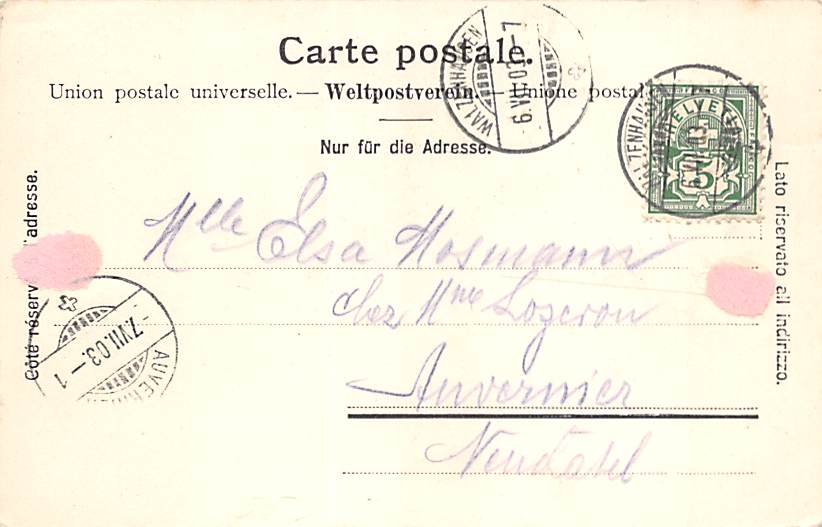 Carte postale.
Union postale universelle. — Weltpostverein. — Unione postale
Nur für die Adresse.
WALZENHAUSEN
6.VII.03.–7
WALZENHAUSEN
6.VII.03.–7
HELVETIA
5
Côté réservé à l'adresse.
Lato riservato all indirizzo.
Mlle Elsa Mosmann
chez Mme Lozeron
Auvernier
Neuchatel
–7.VII.03.–1
AUVERNIER